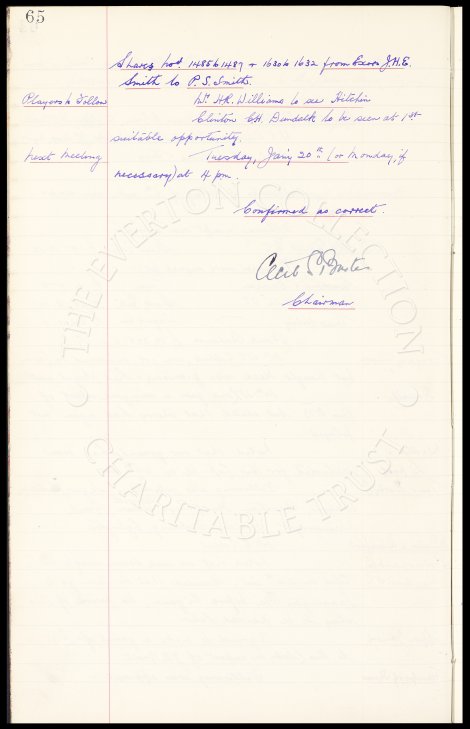 65
Shares nos. 1485 to 1487 + 1630 to 1632 from Exors J.H.E.
Smith to P.S. Smith.
Players to Follow Mr. H.R. Williams to see Hitchin
Clinton C.H. Dundalk to be seen at 1st
suitable opportunity.
Next Meeting Tuesday, Jan'y 20th (or Monday, if
necessary) at 4 pm.
Confirmed as correct.
Cecil S. Baxter
Chairman
THE EVERTON COLLECTION
CHARITABLE TRUST